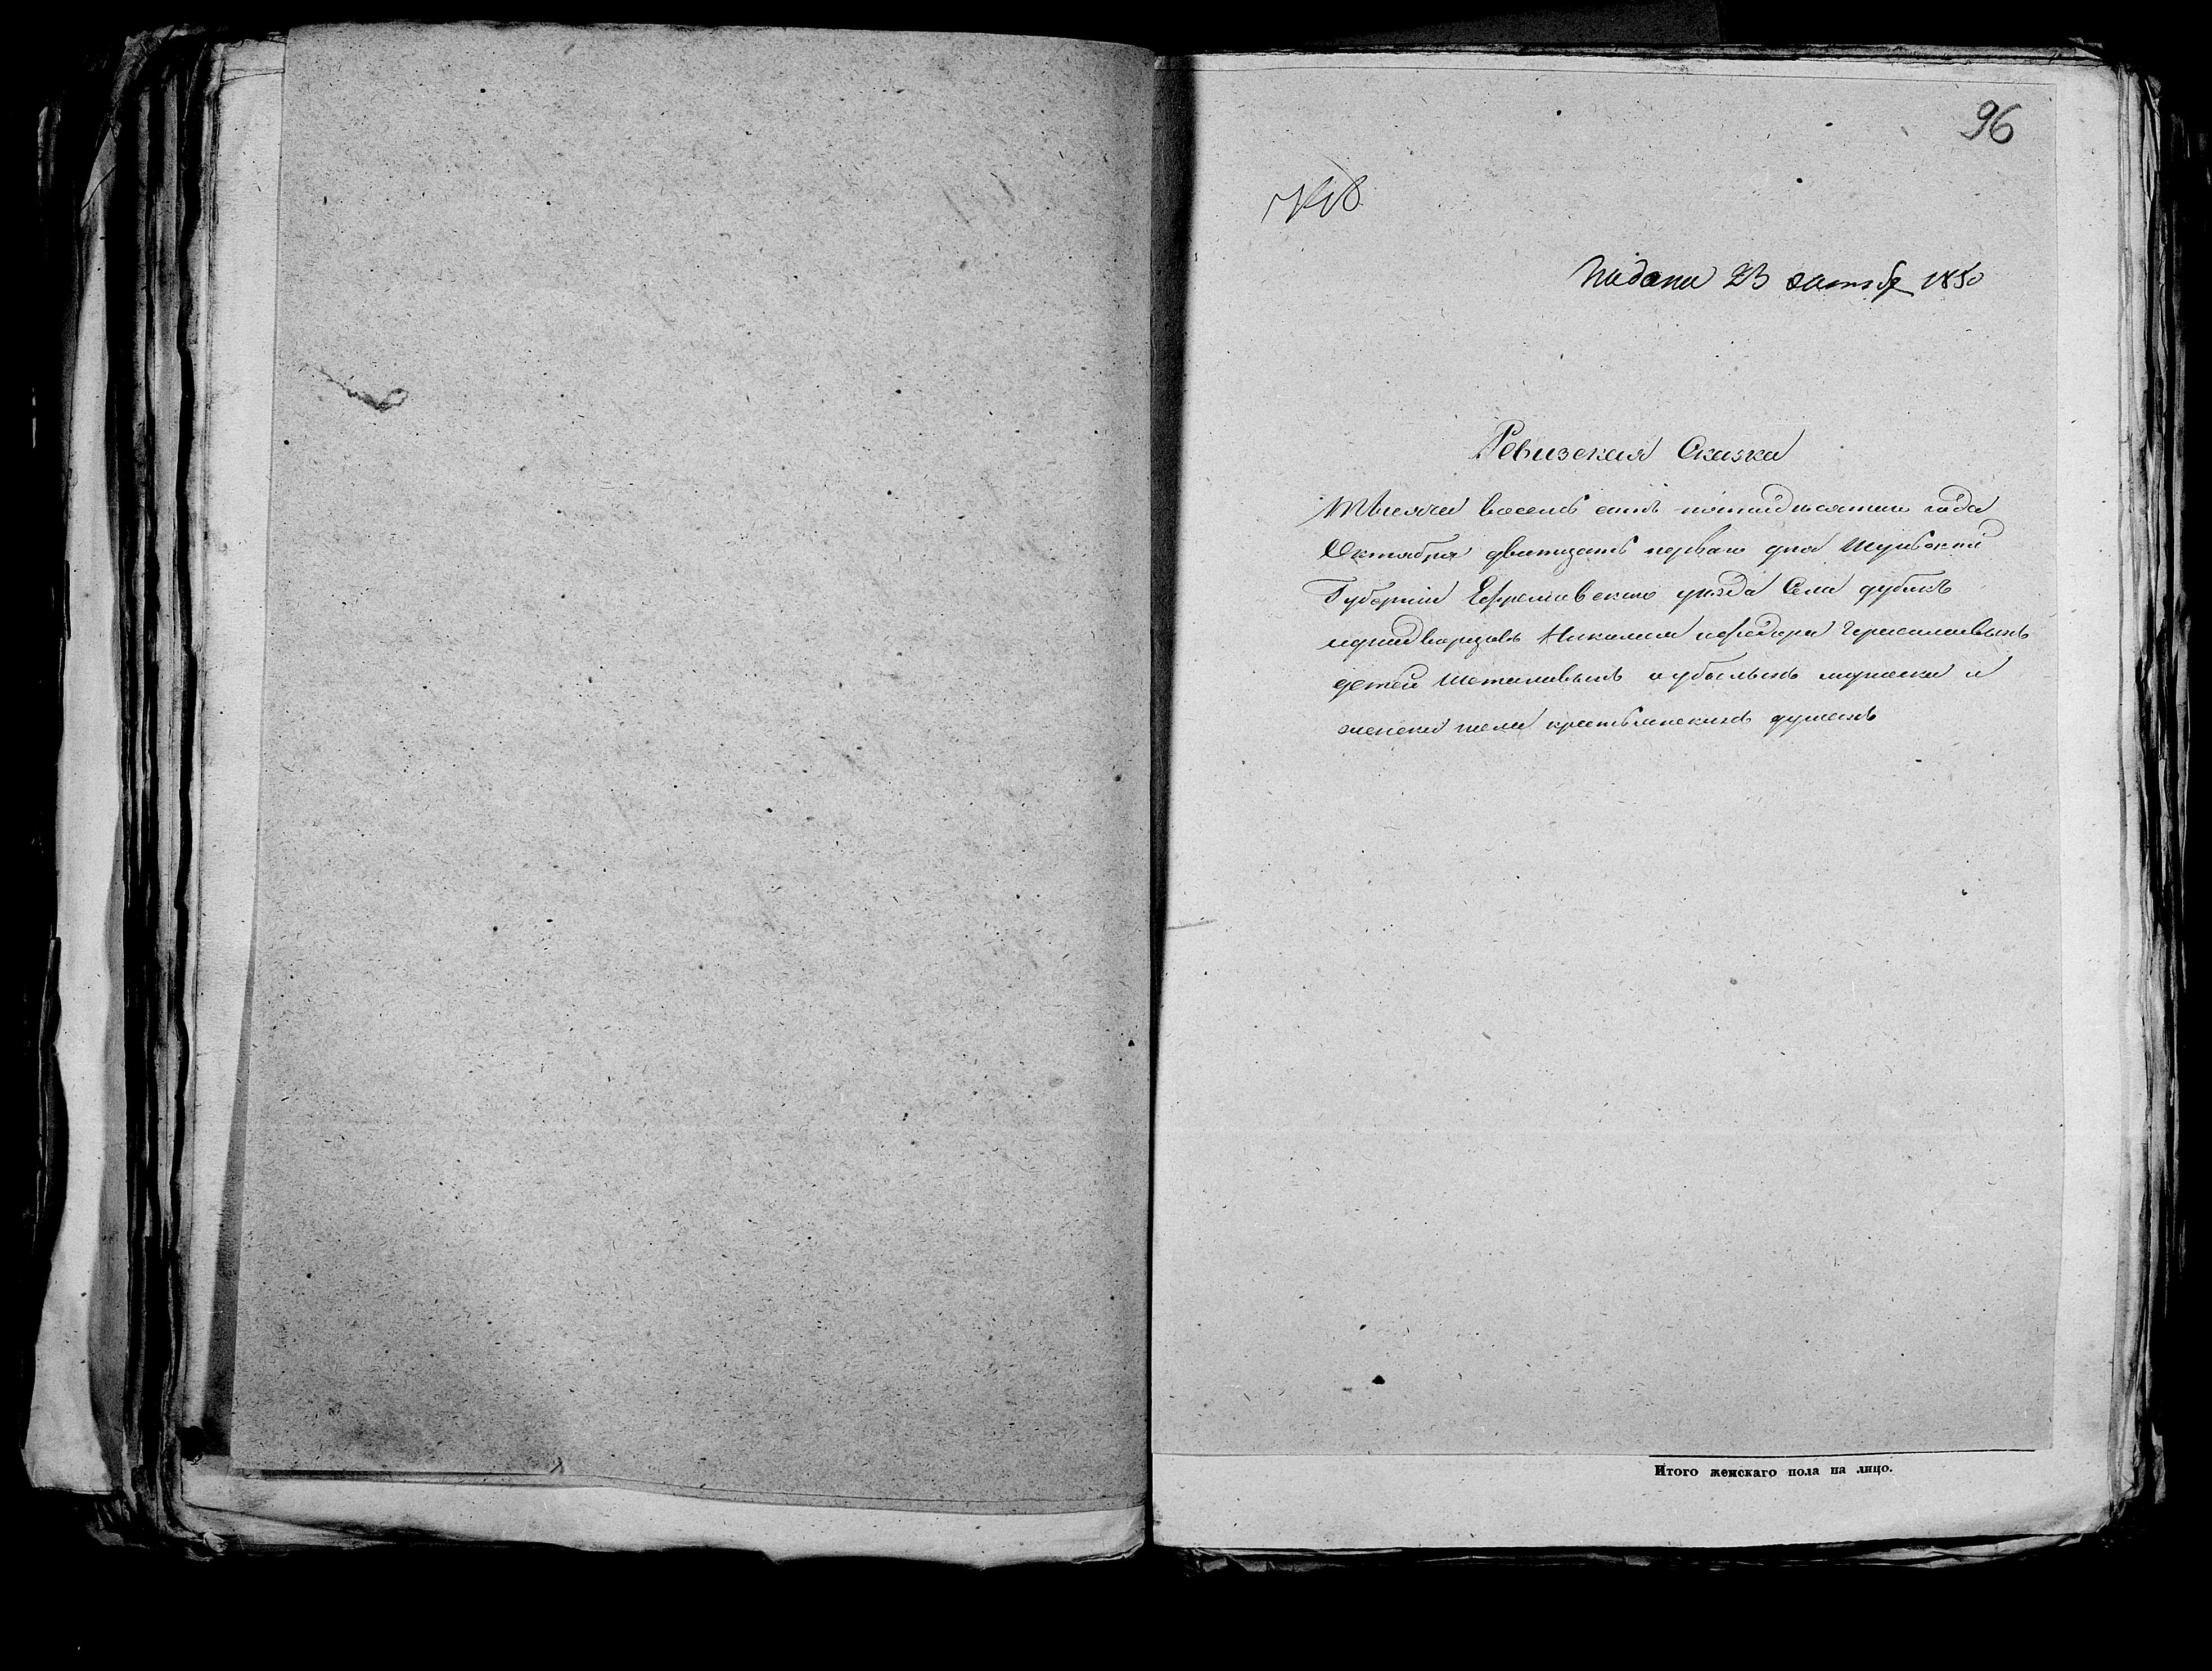 96
Подана 23 октябр 1850
Ревизская Сказка
Тысяча восемь сотъ пятидисятаго года
Октября дватцать перваго дня Тульской
Губерніи Ефремовскаго уезда Села дубикъ
аднадворцовъ Николая ифедора Герасимовыхъ
детей Шеталовыхъ о убылыхъ мужска и
женска пола крестьянскихъ душахъ
Итого женскаго пола на лицо.